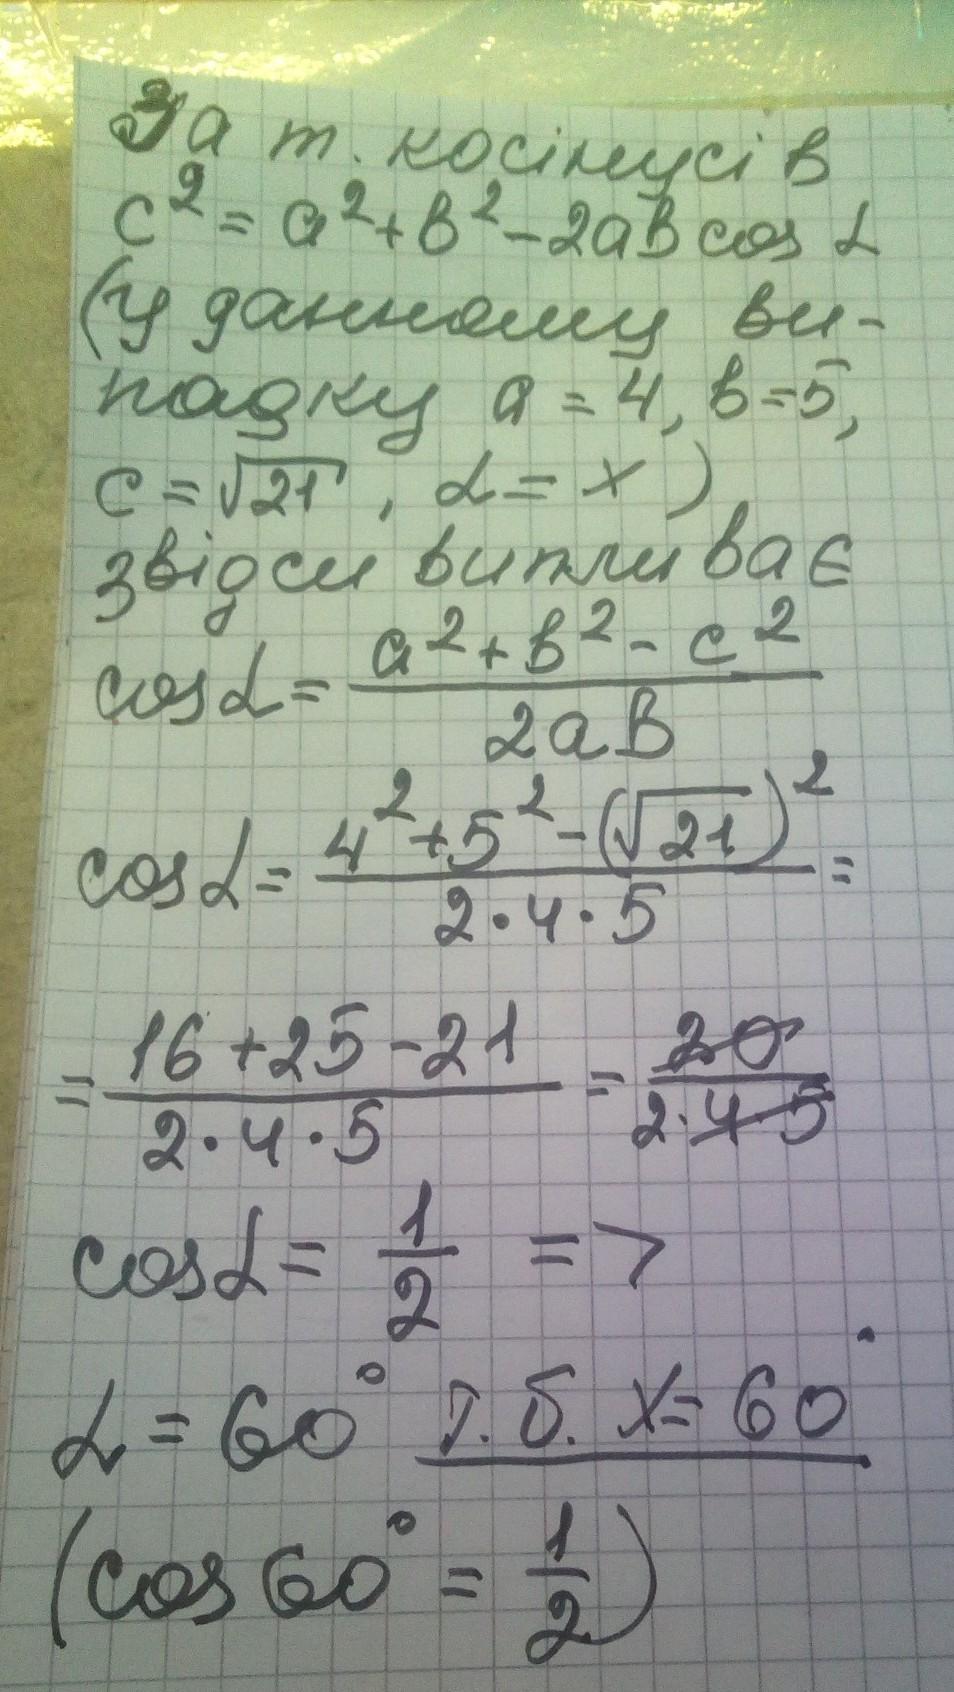 За т. косінусів
c² = a² + b² - 2ab cos α
(у данному ви-
падку a = 4, b = 5,
c = √21, α = x)
звідси випливає
cos α = (a² + b² - c²) / 2ab
cos α = (4² + 5² - (√21)²) / (2 · 4 · 5) =
= (16 + 25 - 21) / (2 · 4 · 5) = 20 / (2 · 4 · 5)
cos α = 1/2 =>
α = 60° т.б. x = 60°
(cos 60° = 1/2)